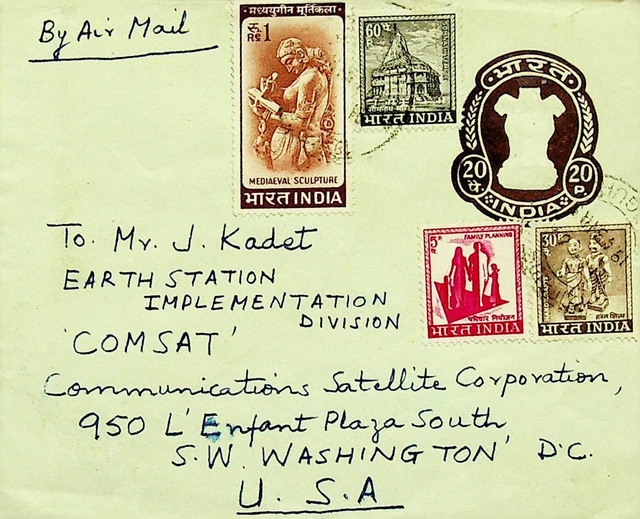 By Air Mail
मध्ययुगीन मूर्तिकला
रु. 1
RS
MEDIAEVAL SCULPTURE
भारत INDIA
60
भारत INDIA
भारत
20 20
पै P.
INDIA
5
FAMILY PLANNING
परिवार नियोजन
भारत INDIA
30
हस्त शिल्प
भारत INDIA
To. Mr. J. Kadet
EARTH STATION
IMPLEMENTATION
DIVISION
'COMSAT'
Communications Satellite Corporation,
950 L'Enfant Plaza South
S.W. WASHINGTON D.C.
U.S.A